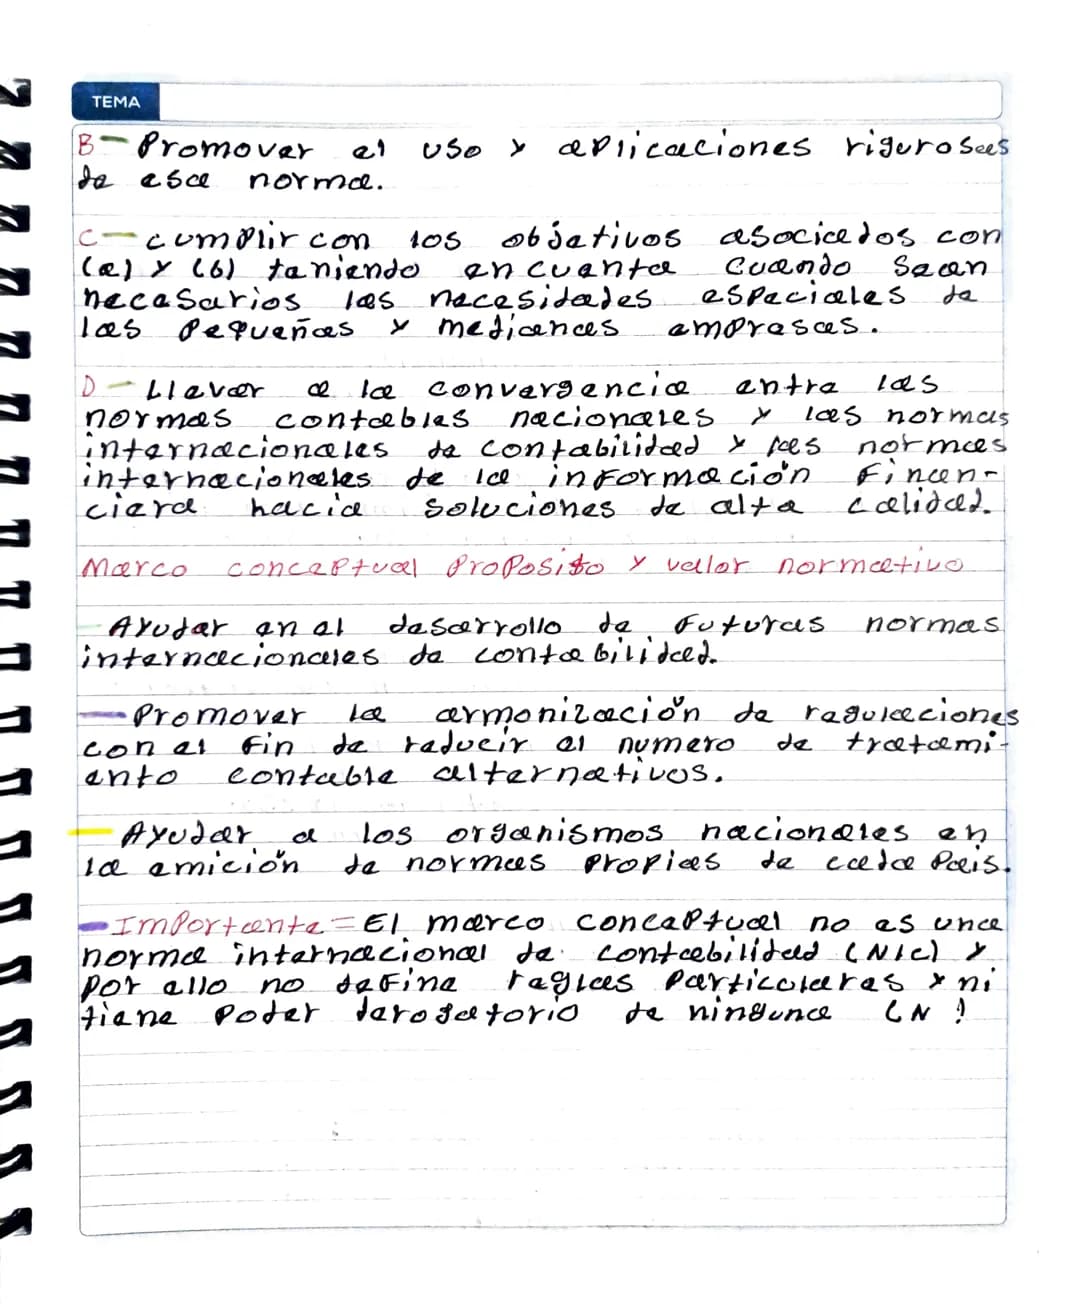 TEMA
B- Promover el uso y aplicaciones rigurosas
de esa norma.
C- cumplir con los objetivos asociados con
(a) y (b) teniendo en cuenta cuando sean
necesarios las necesidades especiales de
las pequeñas y medianas empresas.
D- Llevar a la convergencia entre las
normas contables nacionales y las normas
internacionales de contabilidad y las normas
internacionales de la información Finan-
ciera hacia soluciones de alta calidad.
Marco conceptual Proposito y valor normativo
Ayudar en el desarrollo de futuras normas
internacionales de contabilidad.
- Promover la armonización de regulaciones
con el fin de reducir el numero de tratami-
ento contable alternativos.
- Ayudar a los organismos nacionales en
la amición de normas propias de cada País.
- Importante = El marco conceptual no es una
norma internacional de contabilidad (NIC) y
por ello no define reglas particulares y ni
tiene poder derogatorio de ninguna (N !